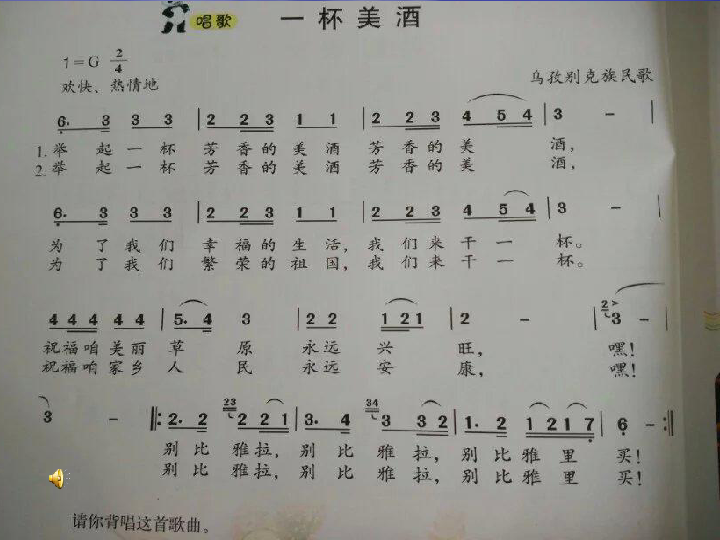 唱歌 一杯美酒
1=G 2/4
欢快、热情地
乌孜别克族民歌
6. 3 3 3 | 2 2 3 1 1 | 2 2 3 4 5 4 | 3 - |
1. 举 起 一 杯 芳 香 的 美 酒 芳 香 的 美 酒,
2. 举 起 一 杯 芳 香 的 美 酒 芳 香 的 美 酒,
6. 3 3 3 | 2 2 3 1 1 | 2 2 3 4 5 4 | 3 - |
为 了 我 们 幸 福 的 生 活, 我 们 来 干 一 杯。
为 了 我 们 繁 荣 的 祖 国, 我 们 来 干 一 杯。
4 4 4 4 4 | 5. 4 3 | 2 2 1 2 1 | 2 - | 2 3 - |
祝 福 咱 美 丽 草 原 永 远 兴 旺, 嘿!
祝 福 咱 家 乡 人 民 永 远 安 康, 嘿!
3 - |: 2. 2 23 2 2 1 | 3. 4 34 3 3 2 | 1. 2 1 2 1 7 | 6 - :|
别 比 雅 拉, 别 比 雅 拉, 别 比 雅 里 买!
别 比 雅 拉, 别 比 雅 拉, 别 比 雅 里 买!
请你背唱这首歌曲。